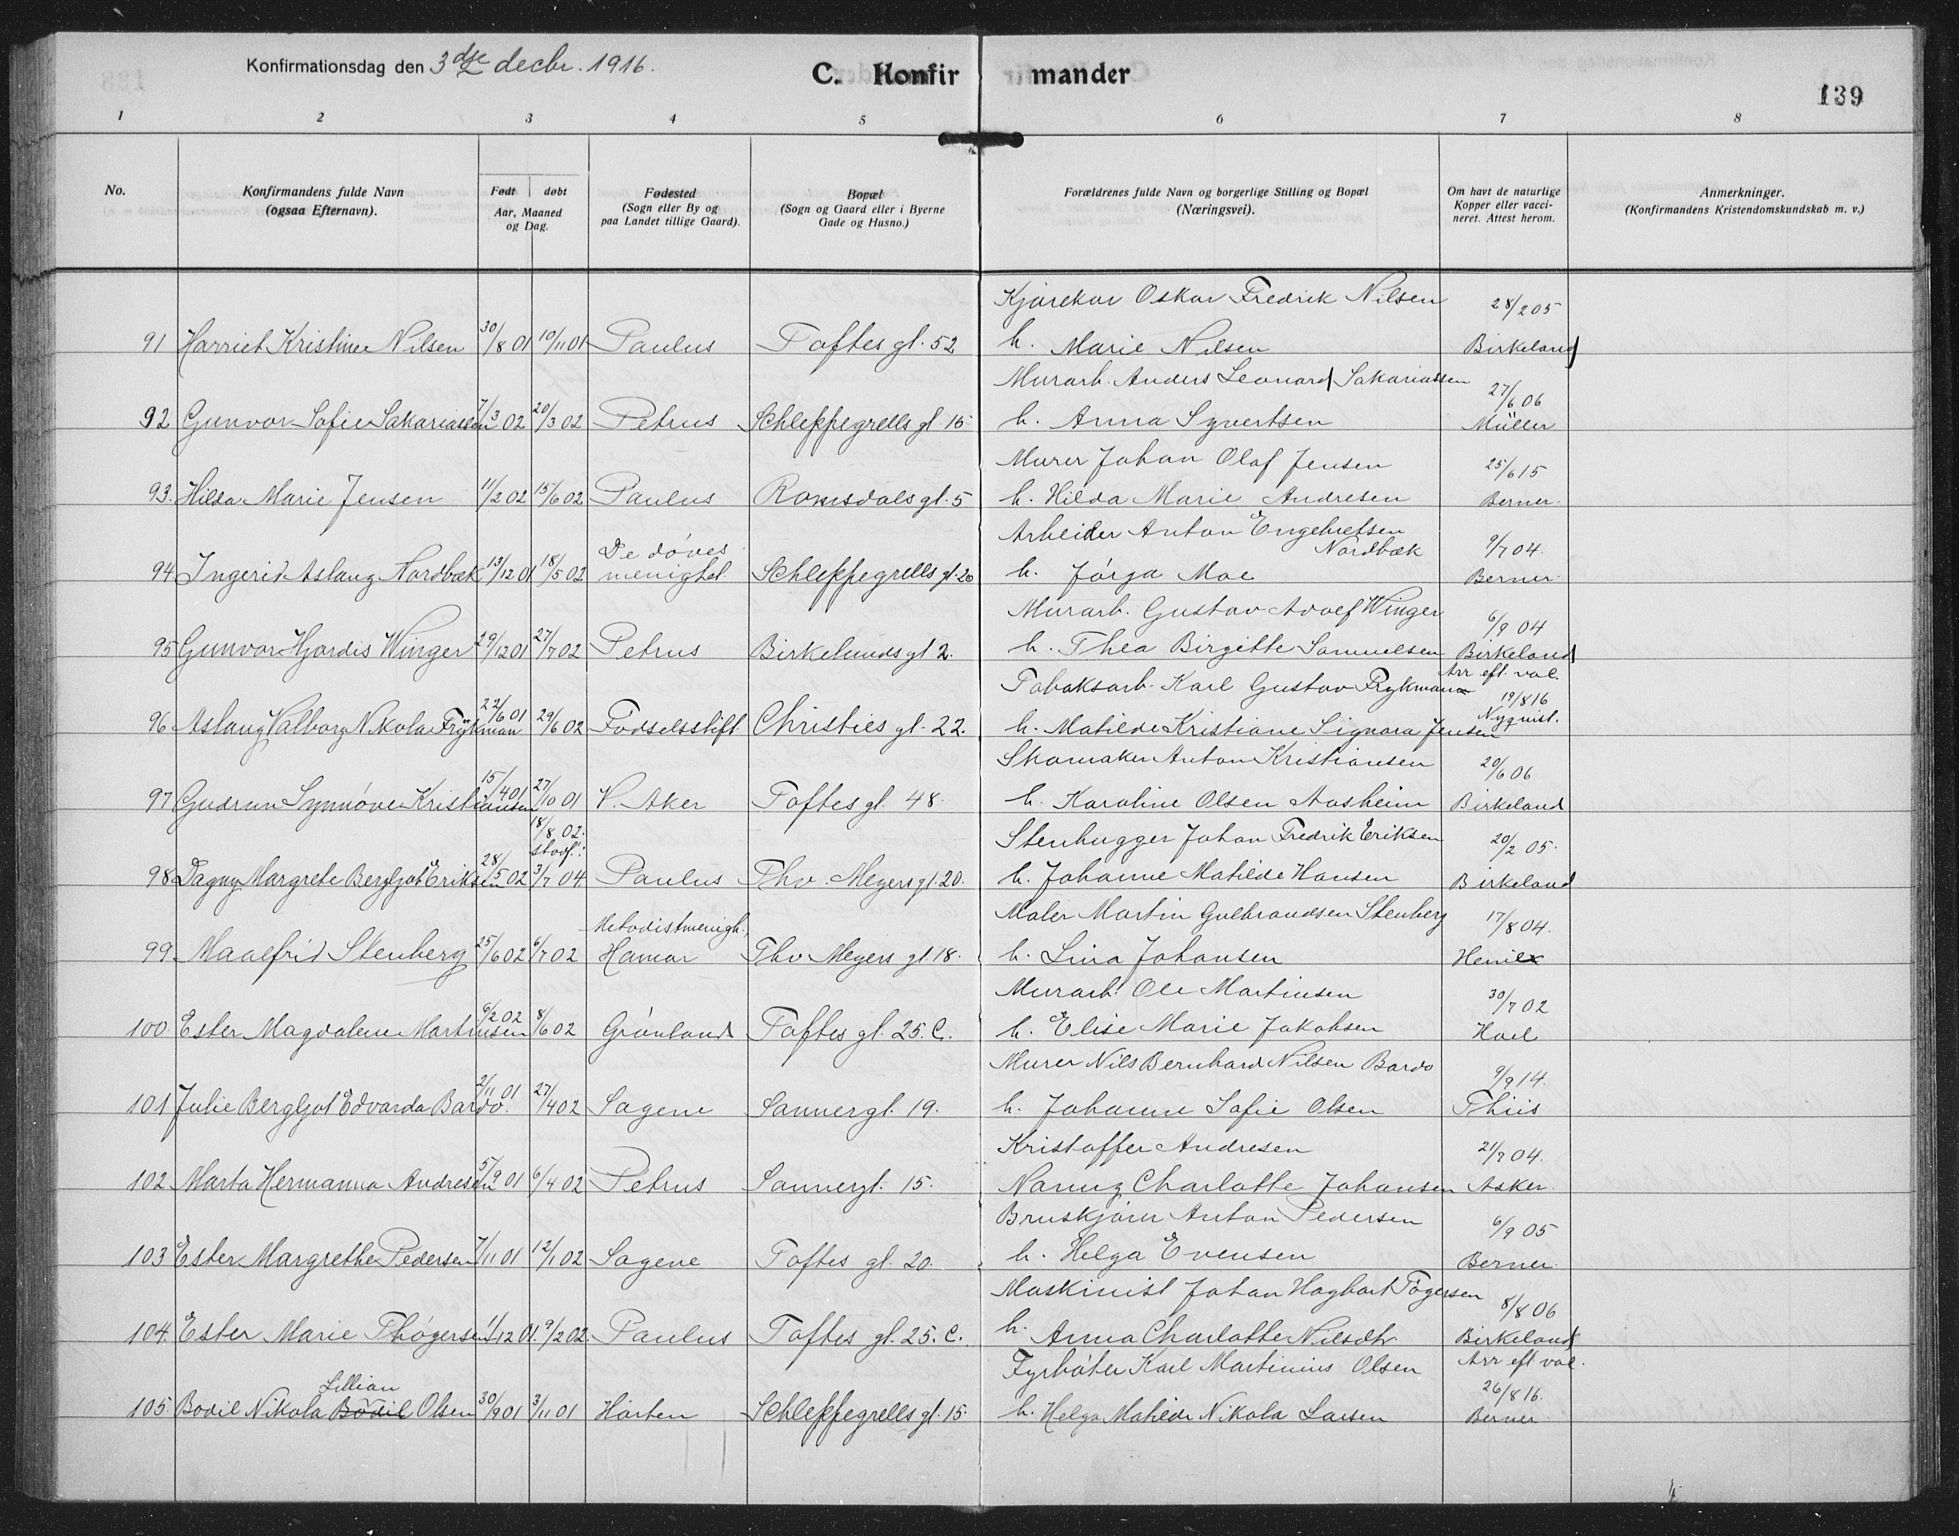 Konfirmationsdag den 3dje decbr. 1916.
C. Konfirmander
139
1 2 3 4 5 6 7 8
No.
Konfirmandens fulde Navn
(ogsaa Efternavn).
Født døbt
Aar, Maaned
og Dag.
Fødested
(Sogn eller By og
paa Landet tillige Gaard).
Bopæl
(Sogn og Gaard eller i Byerne
Gade og Husno.)
Forældrenes fulde Navn og borgerlige Stilling og Bopæl
(Næringsvei).
Om havt de naturlige
Kopper eller vacci-
neret. Attest herom.
Anmerkninger.
(Konfirmandens Kristendomskundskab m. v.)
Kjørekar Oskar Fredrik Nilsen 28/2 05
91 Harriet Kristine Nilsen 30/8 01 10/11 01 Paulus Toftes gt. 52 h. Marie Nilsen Birkeland
Murarb. Anders Leonard Sakariassen 27/6 06
92 Gunvor Sofie Sakariassen 7/3 02 20/3 02 Petrus Schleppegrells gt. 15 h. Anna Syvertsen Müller
Murer Johan Olaf Jensen 25/6 15
93. Hilda Marie Jensen 11/2 02 15/6 02 Paulus Romsdals gt. 5 h. Hilda Marie Andresen Berner.
Arbeider Anton Engebretsen
De døves Nordbæk 9/7 04.
94 Ingerid Aslaug Nordbæk 13/12 01 18/5 02 menighet. Schleppegrells gt. 20 h. Jørga Moe Berner.
Murarb. Gustav Adolf Winger 6/9 04
95 Gunvor Hjordis Winger 29/12 01 27/7 02 Petrus Birkelunds gt 2. h. Thea Birgitte Samuelsen Birkeland
Tobaksarb. Karl Gustav Frykman Arr eft. vac. 19/8 16
96 Aslaug Valborg Nikola Frykman 22/6 01 29/6 02 Fødselsstift. Christies gt. 22. h. Matilde Kristiane Signora Jensen Nyquist.
Skomaker Anton Kristiansen 20/6 06
97 Gudrun Synnøve Kristiansen 15/4 01 27/10 01 V. Aker Toftes gt. 48. h. Karoline Olsen Aasheim Birkeland
18/8 02. Stenhugger Johan Fredrik Eriksen 20/2 05.
stadf.:
98 Dagny Margrete Bergljot Eriksen 28/5 02 3/7 04 Paulus Thv. Meyers gt. 20. h. Johanne Matilde Hansen Birkeland
Metodistmenigh. Maler Martin Gulbrandsen Stenberg 17/8 04.
99 Maalfrid Stenberg 25/6 02 6/7 02 Hamar Thv Meyers gt. 18. h. Lina Johansen
Murarb. Ole Martinsen 30/7 02
100. Ester Magdalene Martinsen 6/2 02 8/6 02 Grønland Toftes gt. 25. C. h. Elise Marie Jakobsen Hoel
Murer Nils Bernhard Nilsen Bardo 9/9 14.
101 Julie Bergljot Edvarda Bardo. 2/11 01 27/4 02 Sagene Sannergt. 19. h. Johanne Sofie Olsen Thiis
Kristoffer Andresen 21/9 04.
102 Marta Hermanna Andresen 5/9 01 6/4 02 Petrus Sannergt. 15. Nanny Charlotte Johansen Asker.
Bruskjører Anton Pedersen 6/9 05
103 Ester Margrethe Pedersen 7/11 01 12/1 02 Sagene Toftes gt. 20. h. Helga Evensen Berner.
Maskinist Johan Hagbart Tøgersen 8/8 06
104. Ester Marie Thøgersen 11/12 01. 9/2 02. Paulus Toftes gt. 25. C. h. Anna Charlotte Nilsdtr Birkeland
Lillian Fyrbøter Karl Martinius Olsen Arr eft vac. 26/8 16.
105 Bodil Nikola Bodil Olsen 30/9 01 3/11 01 Horten Schleppegrells gt. 15. h. Helga Matilde Nikola Larsen Berner